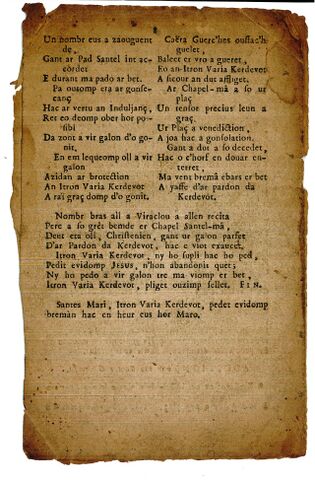 Un nombr eus a zaouguent
de,
Gant ar Pad Santel int ac-
cordet
E durant ma pado ar bet.
Pa ousomp era ar gonse-
cranç
Hac ar vertu an Induljanç,
Ret eo deomp ober hor po-
sibl
Da zont a vir galon d'o go-
nit,
En em lequeomp oll a vir
galon
Azidan ar brotection
An Itron Varia Kerdevot
A raï graç domp d'o gonit.
Caëra Guerc'hes oussac'h
guelet,
Baleet er vro a gueret,
Eo an Itron Varia Kerdevot
A sicour an dut affliget.
Ar Chapel-mâ a so ur
plaç
Un tensor precius leun a
graç.
Ur Plaç a venediction,
A joa hac a gonsolation.
Gant a dot a so decedet,
Hac o c'horf en douar en-
terret,
Ma vent bremâ ebars er bet
A yaffe d'ar pardon da
Kerdevot.
Nombr bras all a Viraclou a allen recita
Pere a so grêt bemde er Chapel Santel-mâ,
Deut eta oll, Christenien, gant ur galon parfet
D'ar Pardon da Kerdevot, hac e viot exaucet.
Itron Varia Kerdevot, ny ho supli hac ho ped,
Pedit evidomp JESUS, n'hon abandonit quet;
Ny ho pedo a vir galon tre ma viomp er bet,
Itron Varia Kerdevot, pliget ouzimp sellet. FIN.
Santes Mari, Itron Varia Kerdevot, pedet evidomp
breman hac en heur eus hor Maro.